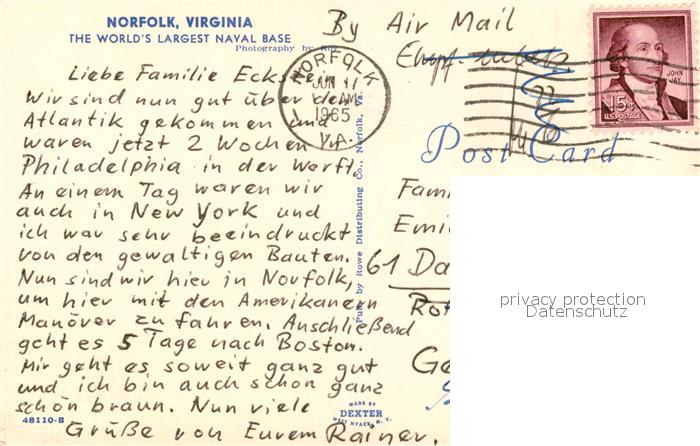 NORFOLK, VIRGINIA
THE WORLD'S LARGEST NAVAL BASE
Photography by
By Air Mail
NORFOLK
JUN 17
AM
1965
VA.
JOHN JAY
15¢
U.S. POSTAGE
Post Card
Liebe Familie
wir sind nun gut über den
Atlantik gekommen und
waren jetzt 2 Wochen in
Philadelphia in der Werft.
An einem Tag waren wir
auch in New York und
ich war sehr beeindruckt
von den gewaltigen Bauten.
Nun sind wir hier in Norfolk,
um hier mit den Amerikanern
Manöver zu fahren. Anschließend
geht es 5 Tage nach Boston.
Mir geht es soweit ganz gut
und ich bin auch schon ganz
schön braun. Nun viele
Grüße von Eurem Rainer.
48110-B
Pub. by Rowe Distributing Co., Norfolk, Va.
MADE BY
DEXTER
WEST NYACK, N. Y.
Fami
Emi
61 Da
Ro
Ge
privacy protection
Datenschutz